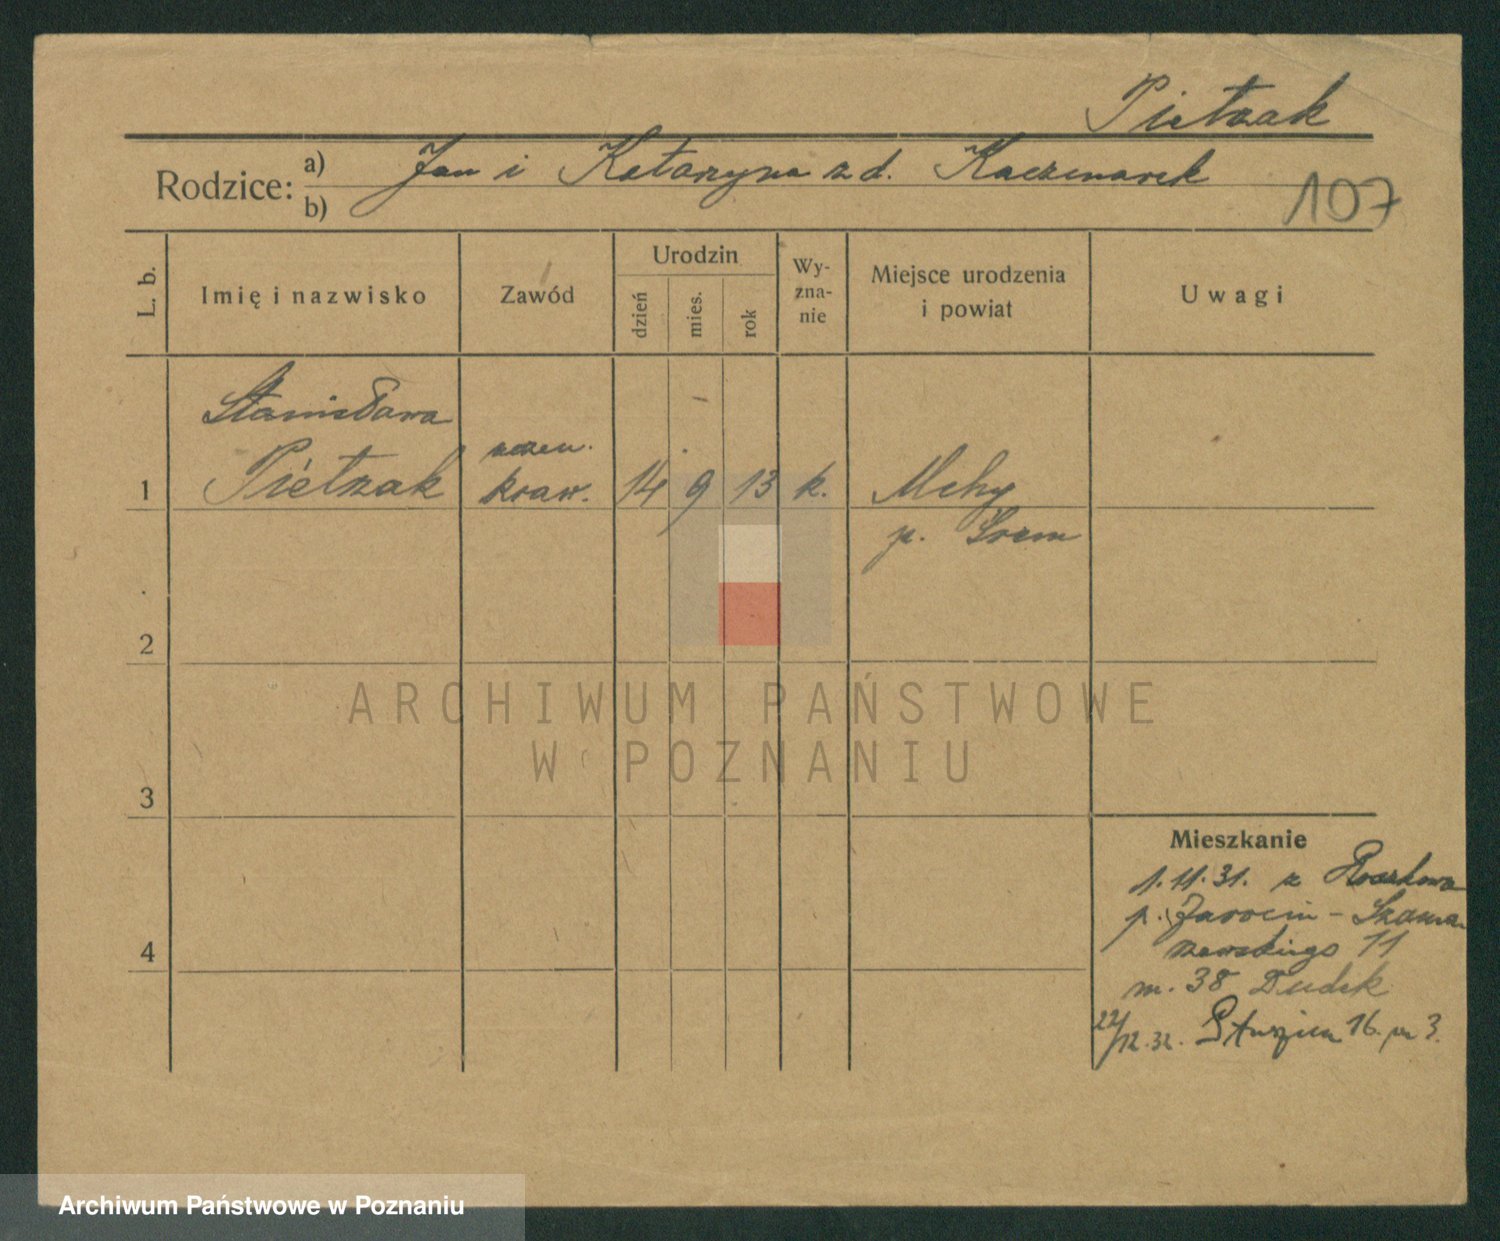 Pietrzak
Rodzice: a) b) Jan i Katarzyna z d. Kaczmarek
107
L. b.
Imię i nazwisko
Zawód
Urodzin
dzień
mies.
rok
Wy-
zna-
nie
Miejsce urodzenia
i powiat
Uwagi
Stanisława
uczen.
1 Pietrzak kraw. 14 9 13 k. Mchy
p. Śrem
2
ARCHIWUM PAŃSTWOWE
W POZNANIU
3
Mieszkanie
1.11.31. z Roszkowa
p. Jarocin - Szama
rzewskiego 11
4
m. 38 Dudek
22/12.32. 16. m 3.
Archiwum Państwowe w Poznaniu